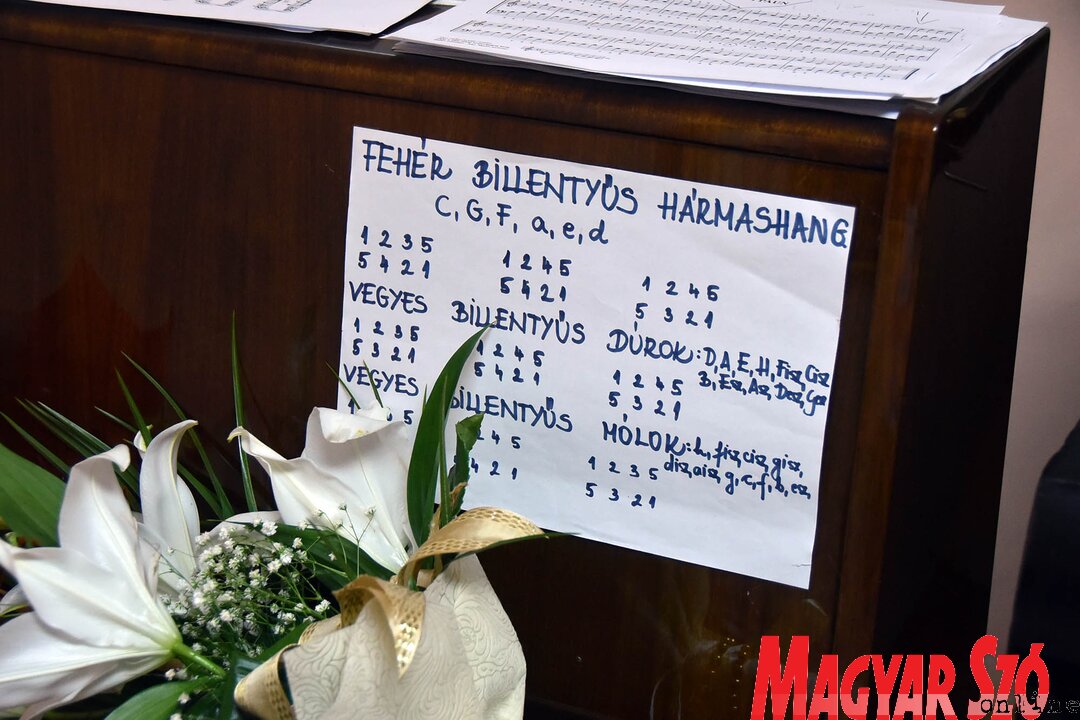 FEHÉR BILLENTYŰS HÁRMASHANG
C, G, F, a, e, d
1 2 3 5 1 2 4 5 1 2 4 5
5 4 2 1 5 4 2 1 5 3 2 1
VEGYES BILLENTYŰS DÚROK: D, A, E, H, Fisz, Cisz
B, Esz, Asz, Desz, Gesz
1 2 3 5 1 2 4 5 1 2 4 5
5 3 2 1 5 4 2 1 5 3 2 1
VEGYES BILLENTYŰS MÓLOK: h, fisz, cisz, gisz,
disz, aisz, g, c, f, b, esz
5 2 4 5 1 2 3 5
4 2 1 5 3 2 1
MAGYAR SZÓ
online